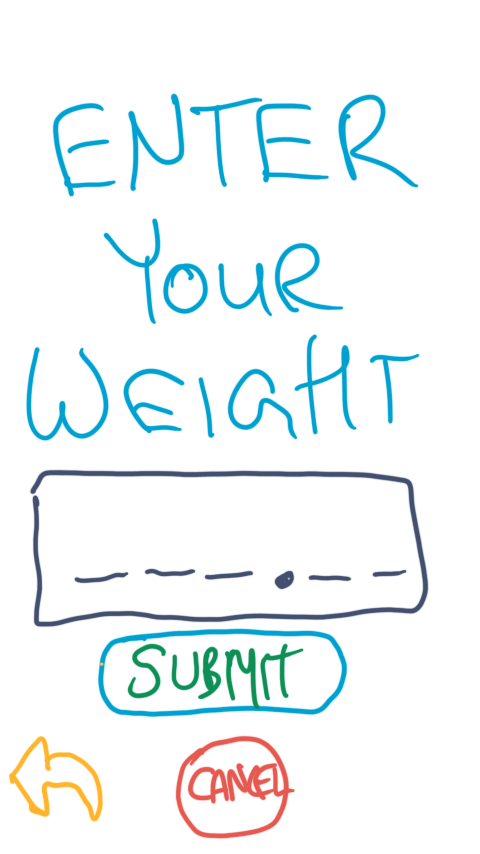 ENTER
YOUR
WEIGHT
_ _ _ . _ _
SUBMIT
CANCEL